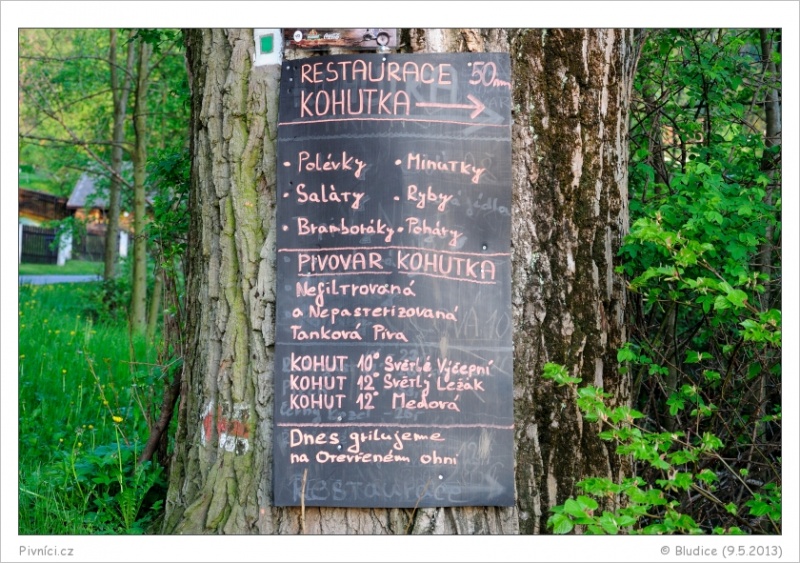 RESTAURACE 50m
KOHUTKA →
• Polévky • Minutky
• Saláty • Ryby
• Bramboráky • Poháry
PIVOVAR KOHUTKA
Nefiltrovaná
a Nepasterizovaná
Tanková Piva
KOHUT 10° Světlé Výčepní
KOHUT 12° Světlý Ležák
KOHUT 12° Medová
Dnes grilujeme
na Otevřeném ohni
Restaurace
Pivníci.cz
© Bludice (9.5.2013)